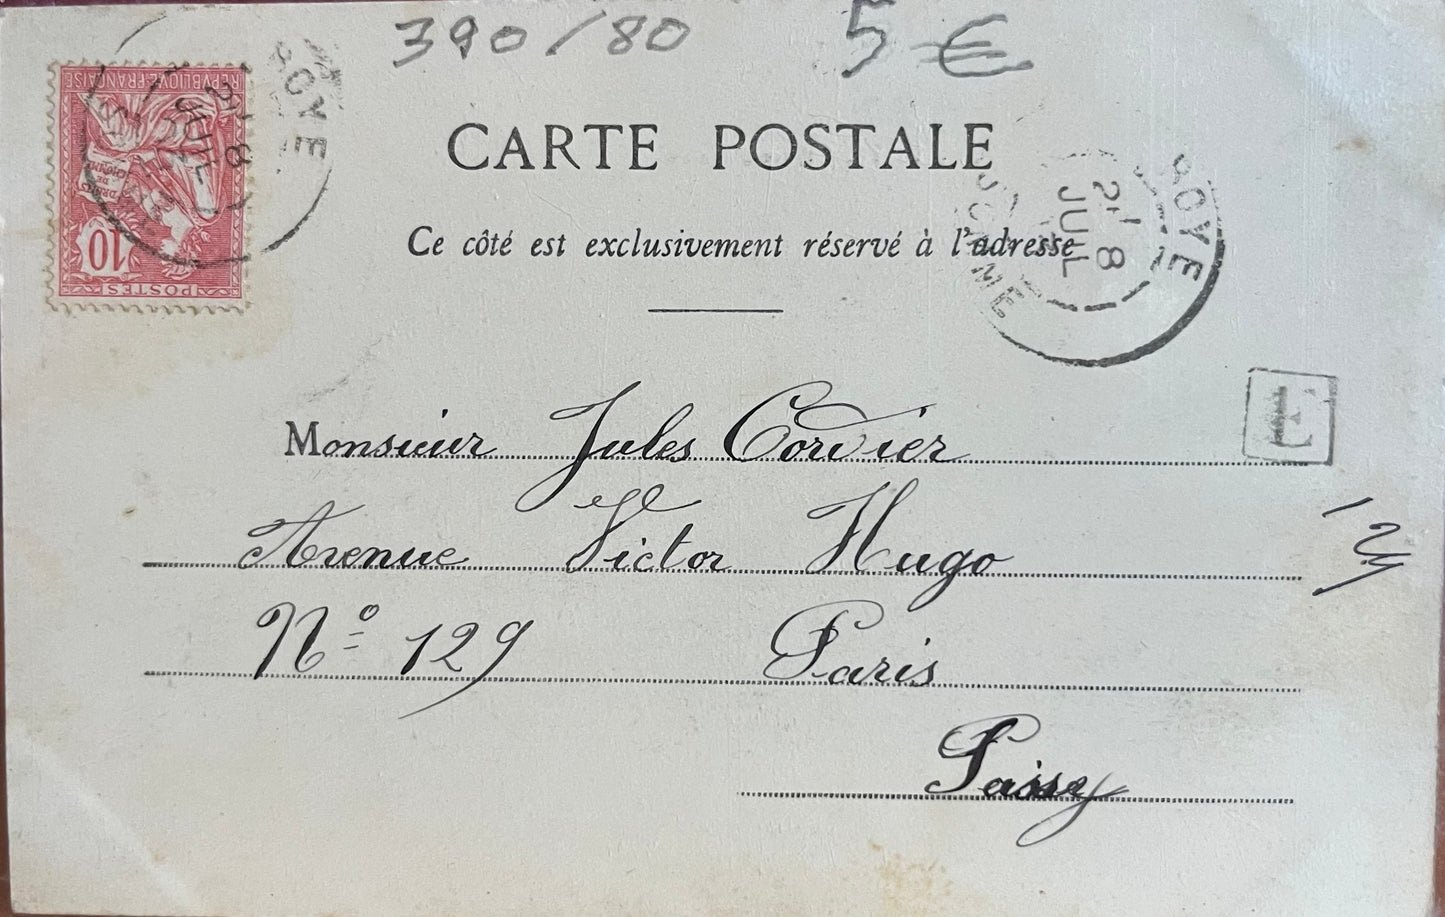 390/80 5 €
REPUBLIQUE FRANÇAISE
DROITS
DE
10
POSTES
ROYE
2 8
JUIL
CARTE POSTALE
Ce côté est exclusivement réservé à l'adresse
ROYE
2 8
JUIL
SOMME
E
Monsieur Jules Cordier
Avenue Victor Hugo
Nº 129 Paris
Passy